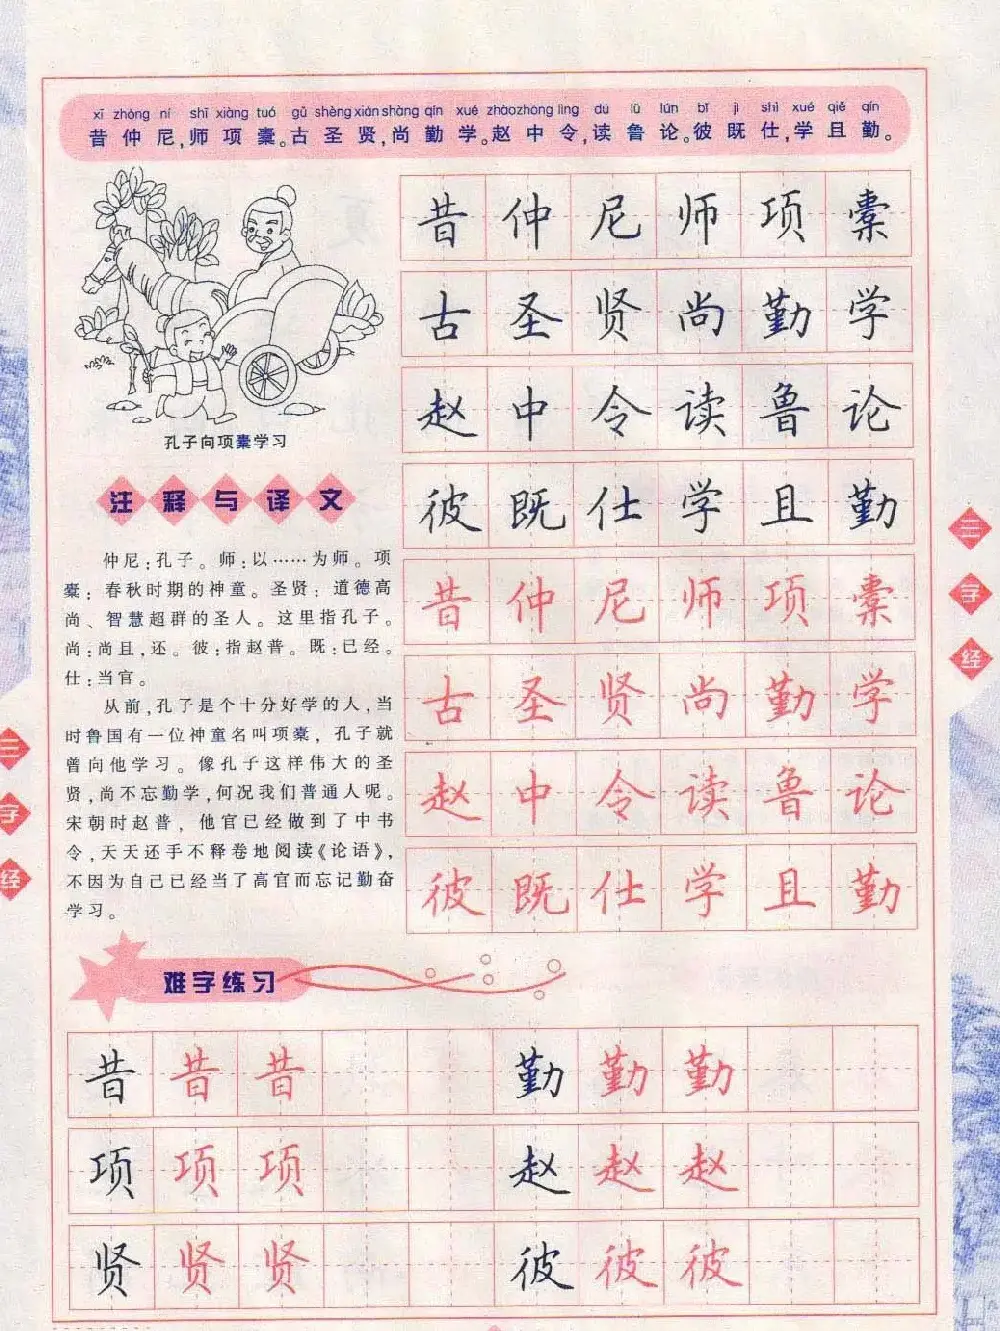 xī zhòng ní shī xiàng tuó gǔ shèng xián shàng qín xué zhào zhōng lìng dú lǔ lún bǐ jì shì xué qiě qín
昔仲尼,师项橐。古圣贤,尚勤学。赵中令,读鲁论。彼既仕,学且勤。
昔仲尼师项橐
古圣贤尚勤学
赵中令读鲁论
彼既仕学且勤
昔仲尼师项橐
古圣贤尚勤学
赵中令读鲁论
彼既仕学且勤
孔子向项橐学习
注释与译文
仲尼:孔子。师:以……为师。项
橐:春秋时期的神童。圣贤:道德高
尚、智慧超群的圣人。这里指孔子。
尚:尚且,还。彼:指赵普。既:已经。
仕:当官。
从前,孔子是个十分好学的人,当
时鲁国有一位神童名叫项橐,孔子就
曾向他学习。像孔子这样伟大的圣
贤,尚不忘勤学,何况我们普通人呢。
宋朝时赵普,他官已经做到了中书
令,天天还手不释卷地阅读《论语》,
不因为自己已经当了高官而忘记勤奋
学习。
三字经
三字经
难字练习
昔昔昔 勤勤勤
项项项 赵赵赵
贤贤贤 彼彼彼